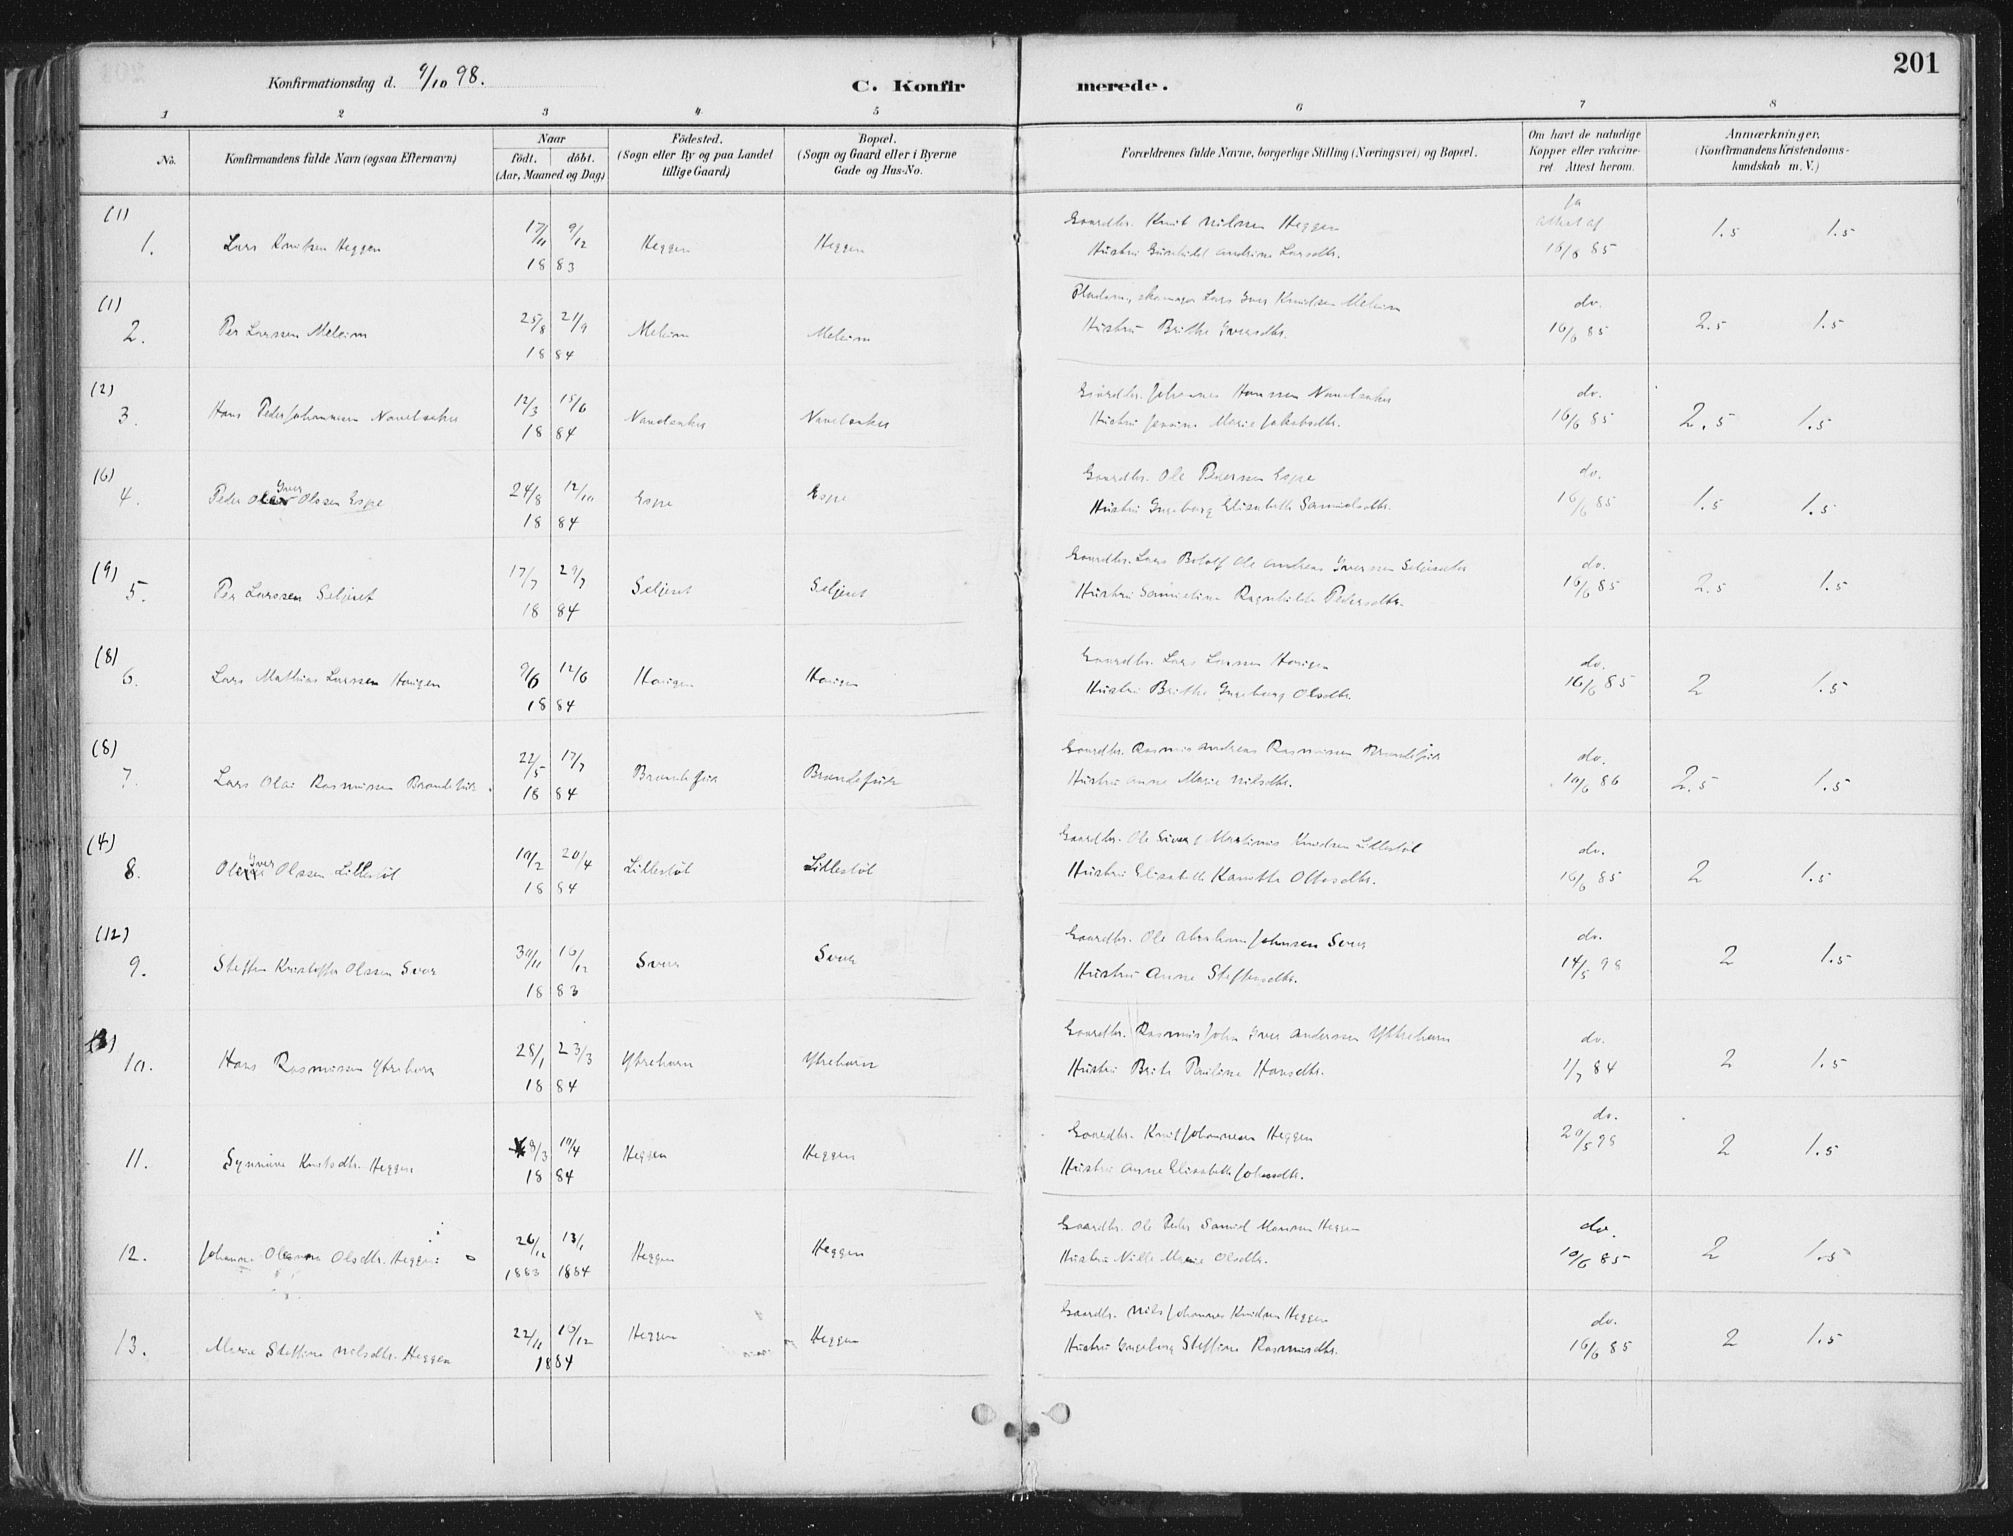 201
Konfirmationsdag d. 9/10 98.
C. Konfir merede.
1 2 3 4 5 6 7 8
No.
Konfirmandens fulde Navn (ogsaa Efternavn)
Naar
födt. döbt.
(Aar, Maaned og Dag)
Födested.
(Sogn eller By og paa Landet
tillige Gaard)
Bopæl.
(Sogn og Gaard eller i Byerne
Gade og Hus-No.
Forældrenes fulde Navne, borgerlige Stilling (Næringsvei) og Bopæl.
Om havt de naturlige
Kopper eller vakcine-
ret. Attest herom.
Anmærkninger.
(Konfirmandens Kristendoms-
kundskab m. V.)
(1)
1. Lars Knutsen Heggen 17/11 9/12 Heggen Heggen Gaardbr. Knut Nilssen Heggen ja attest af 1.5 1.5
18 83 Hustru Gunhild Andrine Larsdtr. 16/6 85
(1)
2. Per Larssen Meleim 25/8 21/9 Meleim Meleim Lars Iver Knudsen Meleim do. 2.5 1.5
18 84 Hustru Brithe Iversdtr. 16/6 85
(2)
3. Hans Peder Johannessen Navelsaker 12/3 15/6 Navelsaker Navelsaker Gaardbr. Johannes Hanssen Navelsaker do. 2.5 1.5
18 84 Hustru Jensine Marie Jakobsdtr. 16/6 85
(6)
4. Peder Iver Olssen Espe 24/8 12/10 Espe Espe Gaardbr. Ole Pedersen Espe do. 1.5 1.5
18 84 Hustru Ingeborg Elisabeth Samuelsdtr. 16/6 85
(9)
5. Per Larssen Seljeset 17/7 29/7 Seljeset Seljeset Gaardbr. Lars Botolf Ole Andreas Iverssen Seljeseth do. 2.5 1.5
18 84 Hustru Samueline Ragnhilde Pedersdtr. 16/6 85
(8)
6. Lars Mathias Larssen Haugen 9/6 12/6 Haugen Haugen Gaardbr. Lars Larssen Haugen do. 2 1.5
18 84 Hustru Brithe Ingeborg Olsdtr. 16/6 85
(8)
7. Lars Olai Rasmussen Brandefur 22/5 17/7 Brandefur Brandefur Gaardbr. Rasmus Andreas Rasmussen do. 2.5 1.5
18 84 Hustru Anne Marie Nilsdtr. 10/6 86
(4)
8. Ole Iver Olssen Lillestöl 10/2 20/4 Lillestöl Lillestöl Gaardbr. Ole Sivert Martinus Knudsen Lillestöl do. 2 1.5
18 84 Hustru Elisabeth Kanutte Ottesdtr. 16/6 85
(12)
9. Steffen Kristoffer Olssen Svor 30/11 16/12 Svor Svor Gaardbr. Ole Abraham Johnsen Svor do. 2 1.5
18 83 Hustru Anne Steffensdtr. 14/5 98
10. Hans Rasmussen Ytrehorn 28/1 23/3 Ytrehorn Ytrehorn Gaardbr. Rasmus John Iver Anderssen Ytrehorn do. 2 1.5
18 84 Hustru Brite Pauline Hansdtr. 1/7 84
11. Synnöve Knutsdtr. Heggen 9/3 10/4 Heggen Heggen Gaardbr. Knut Johannessen Heggen do. 20/5 98 2 1.5
18 84 Hustru Anne Elisabeth Johnsdtr.
12. Johanne Olsdtr. Heggen 26/12 13/1 Heggen Heggen Gaardbr. Ole Peder Samuel Monssen Heggen do. 2 1.5
1883 1884 Hustru Nille Marie Olsdtr. 10/6 85
13. Marie Steffine Nilsdtr. Heggen 22/11 10/12 Heggen Heggen Gaardbr. Nils Johannes Knudsen Heggen do. 2 1.5
1884 Hustru Ingeborg Steffine Rasmusdtr. 16/6 85